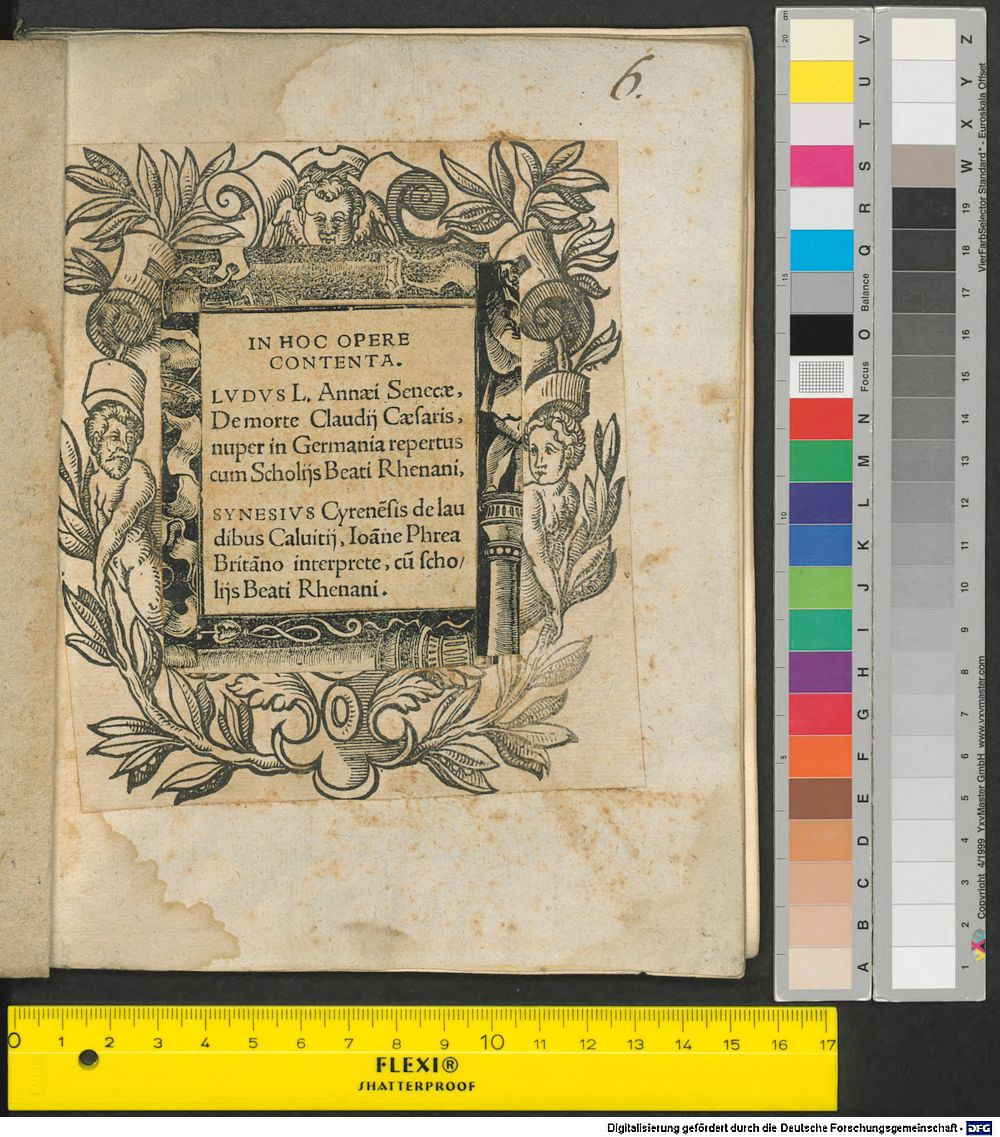 6.
IN HOC OPERE
CONTENTA.
LVDVS L. Annæi Senecæ,
De morte Claudij Cæsaris,
nuper in Germania repertus
cum Scholijs Beati Rhenani,
SYNESIVS Cyrenēsis de lau
dibus Caluitij, Ioāne Phrea
Britāno interprete, cū scho/
lijs Beati Rhenani.
cm
20
15
10
5
V
U
T
S
R
Q
Balance
O
Focus
N
M
L
K
J
I
H
G
F
E
D
C
B
A
Z
Y
X
W
19
18
17
16
15
14
13
12
11
10
9
8
7
6
5
4
3
2
1
VierFarbSelector Standard* - Euroskala Offset
Copyright 4/1999 YxyMaster GmbH www.yxymaster.com
0 1 2 3 4 5 6 7 8 9 10 11 12 13 14 15 16 17
FLEXI®
SHATTERPROOF
Digitalisierung gefördert durch die Deutsche Forschungsgemeinschaft - DFG